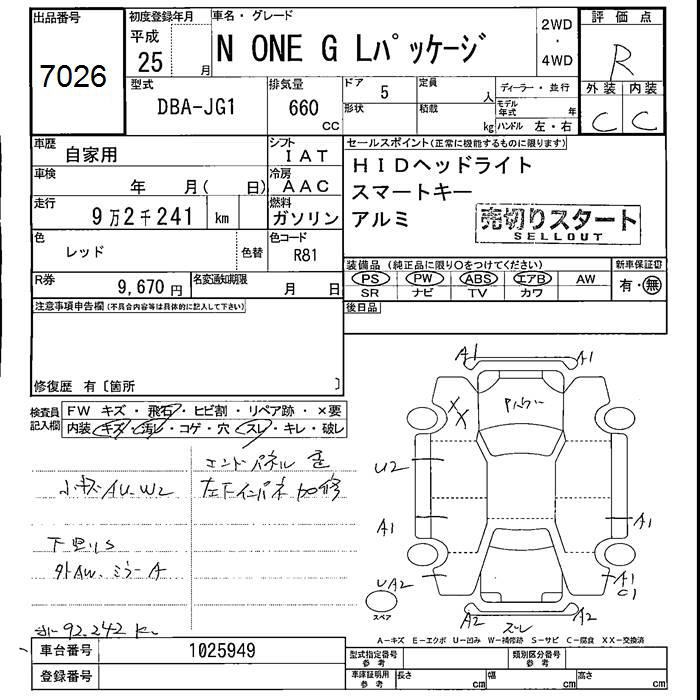 出品番号
7026
初度登録年月
平成
25 月
車名・グレード
N ONE G Lパッケージ
2WD
・
4WD
評価点
R
外装 内装
C C
型式
DBA-JG1
排気量
660
CC
ドア
5
形状
定員
人
積載
kg
ディーラー・並行
モデル年式 年
ハンドル 左・右
車歴
自家用
シフト
IAT
車検
年 月( 日)
冷房
AAC
走行
9万2千241 km
燃料
ガソリン
色
レッド
色替
色コード
R81
R券
9,670 円
名変通知期限
月 日
セールスポイント(正常に機能するものに限ります)
HIDヘッドライト
スマートキー
アルミ
売切りスタート
SELLOUT
装備品 (純正品に限り○をつけてください)
新車保証書
PS PW ABS エアB AW
SR ナビ TV カワ
有・無
後日品
注意事項申告欄(不具合内容等は具体的に記入して下さい)
修復歴 有〔箇所 〕
検査員
記入欄
FW キズ・飛石・ヒビ割・リペア跡・×要
内装 キズ・汚レ・コゲ・穴・スレ・キレ・破レ
エンドパネル
小キズ AU.W2
左リインパネ 加修
下回りS
外AW.ミラーA
92.242 K
A1 A1
XX
U2
A1 A1
UA2
A1
C1
A2 A2
スペア
A-キズ E-エクボ U-凹み W-補修跡 S-サビ C-腐食 XX-交換済
車台番号
1025949
登録番号
型式指定番号
参考
類別区分番号
参考
車庫証明用
参考
長さ cm
幅 cm
高さ cm